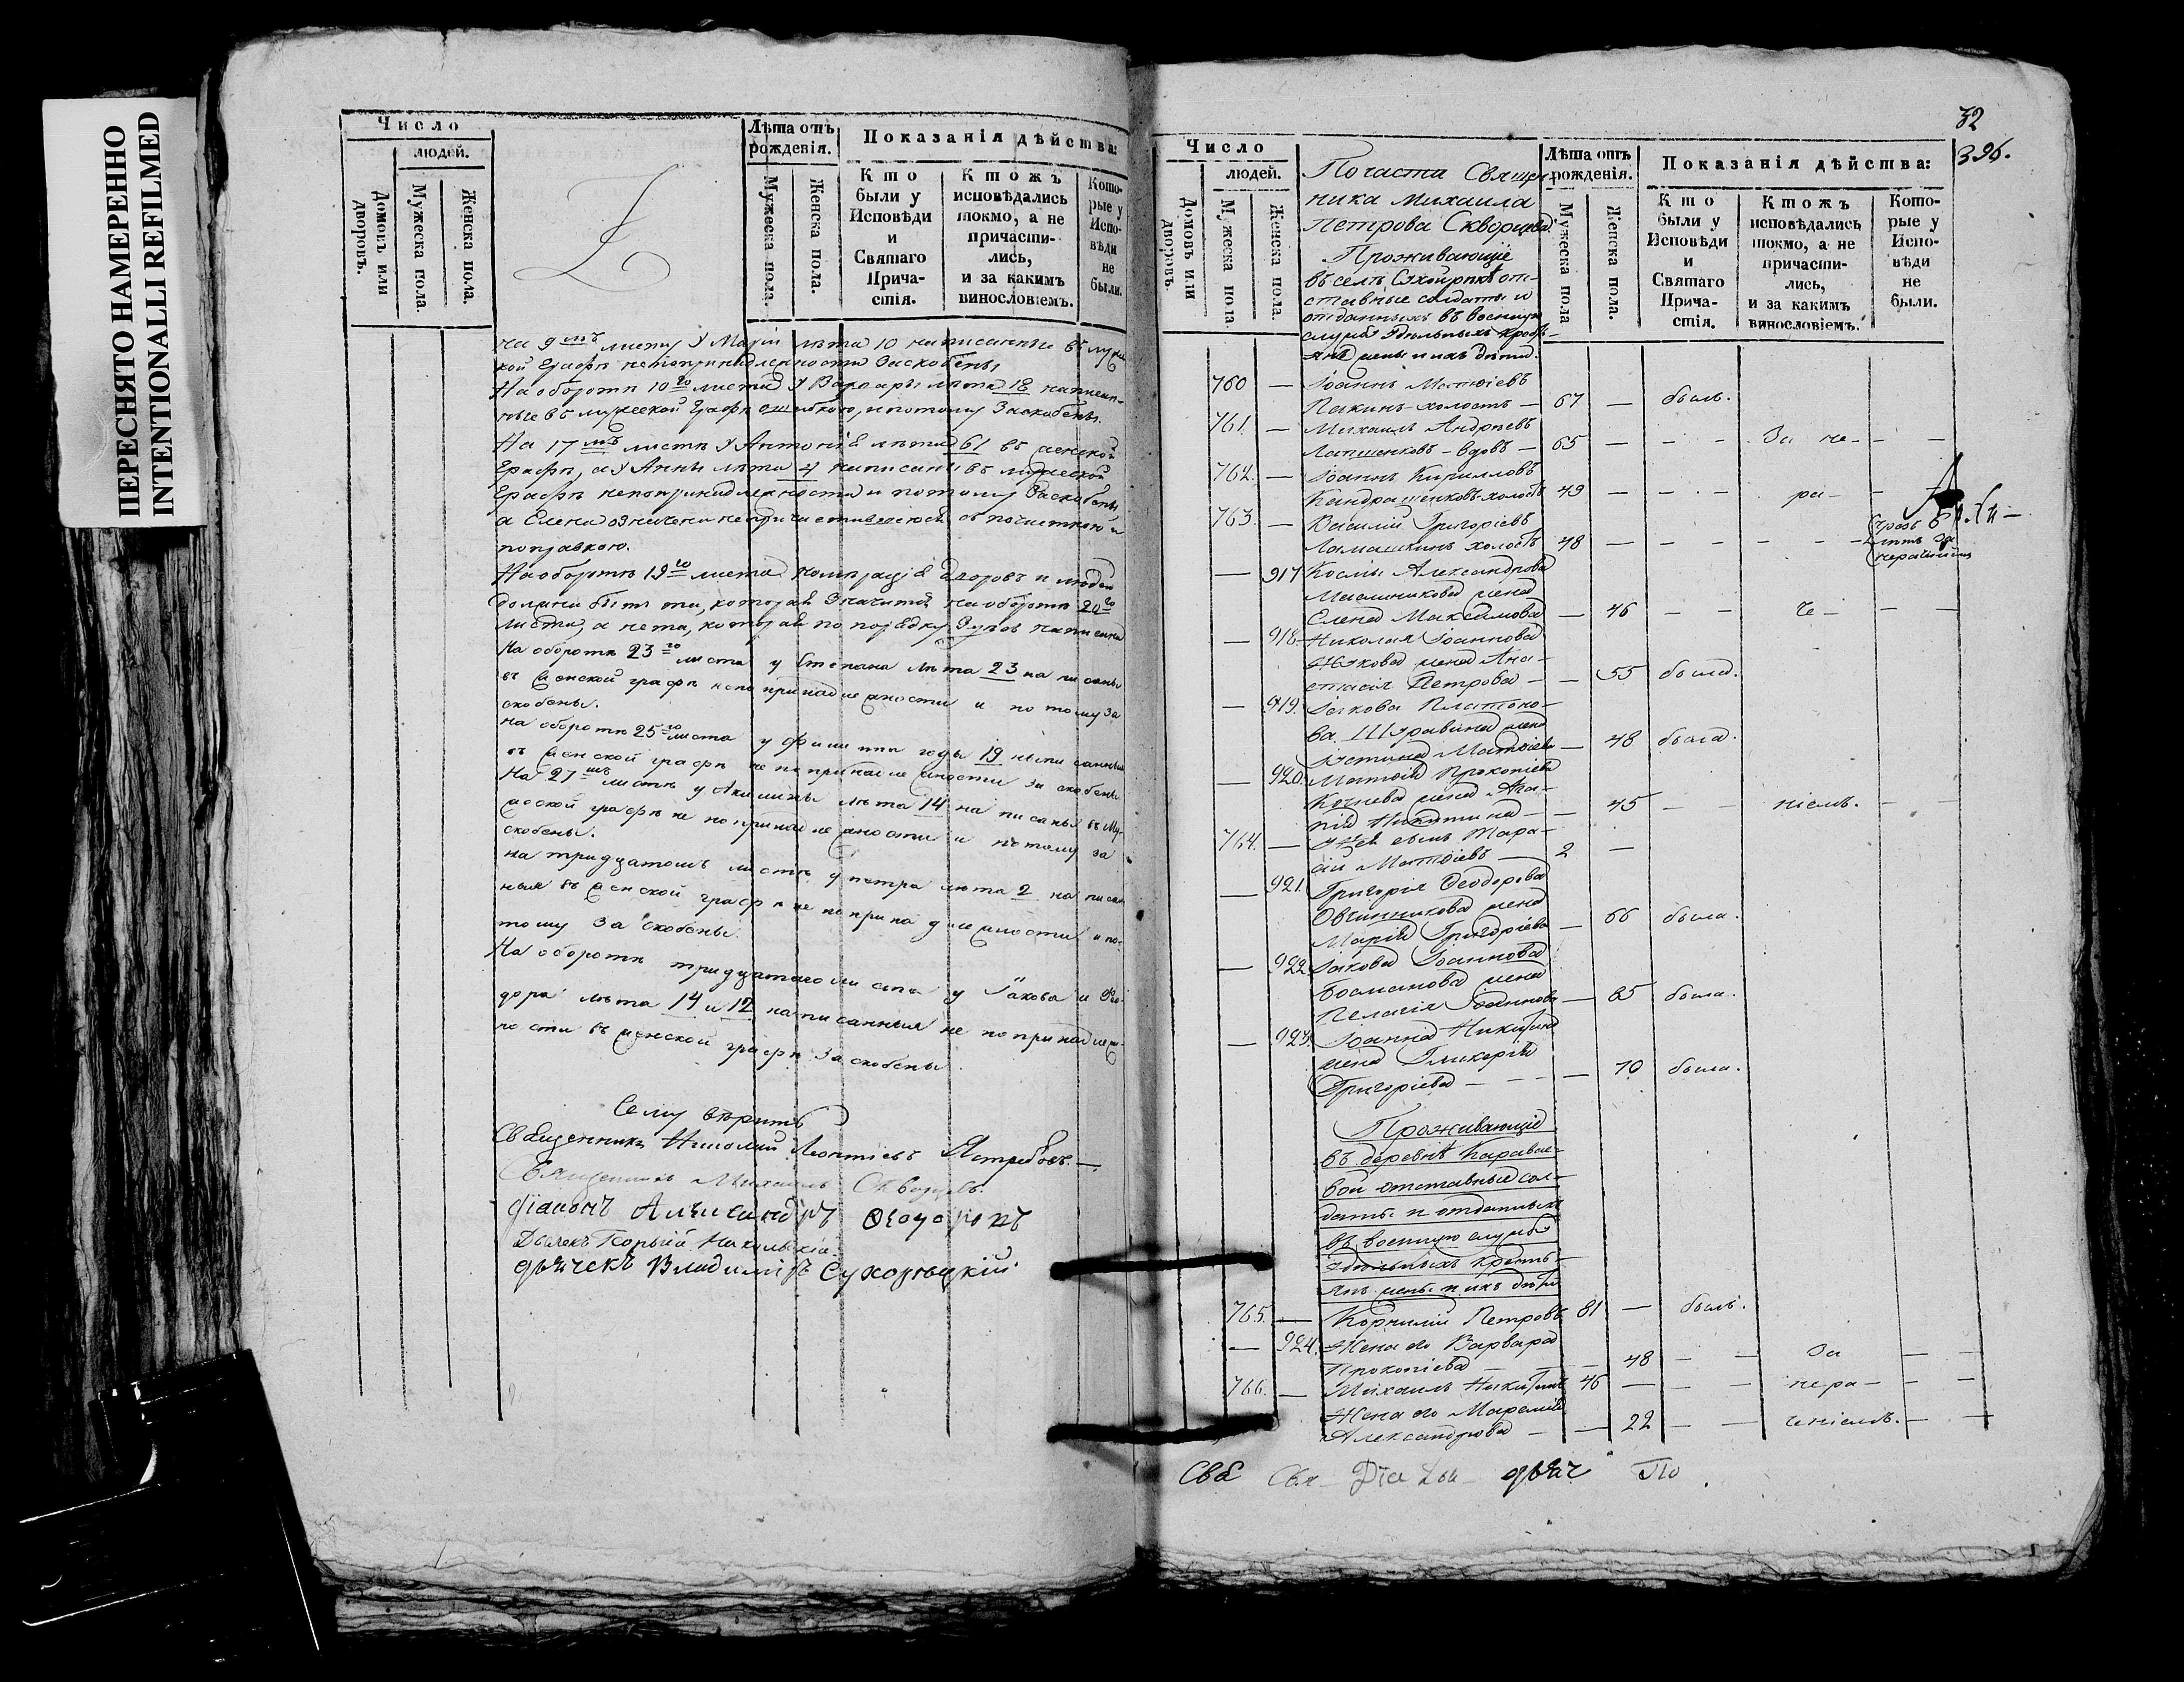 ПЕРЕСНЯТО НАМЕРЕННО
INTENTIONALLI REFILMED
Число
людей.
Домовъ или дворовъ.
Мужеска пола.
Женска пола.
Лѣта отъ рожденія.
Мужеска пола.
Женска пола.
Показанія дѣйства:
Кто были у Исповѣди и Святаго Причастія.
Ктожъ исповѣдались токмо, а не причастились, и за какимъ винословіемъ.
Которые у Исповѣди не были.
на 9мъ листу у Маріи лѣта 10 написанные въ муже
кой графѣ непопринадлежности заскоблены
На оборотѣ 10го листа у Варвары лѣта 18 написан-
ные въ мужеской графѣ ошибкою, и потому заскоблены.
На 17мъ листѣ у Антонія лѣта 61 въ женской
графѣ, а у Анны лѣта 4 написаны въ мужеской
графѣ непопринадлежности и потому заскоблены,
а Елена означена
поправкою.
На оборотѣ 19го листа дворовъ и людей
должна быть та, которая значится на оборотѣ 20го
листа, а не та, которая по порядку написана
На оборотѣ 23го листа у Степана лѣта 23 написаны
въ женской графѣ непопринадлежности и потому за
скоблены.
на оборотѣ 25го листа у Филиппа годы 19 написанныя
въ женской графѣ не попринадлежности за скоблены
На 27мъ листѣ у Акилины лѣта 14 написаны въ му-
жеской графѣ не попринадлежности и потому за
скоблены.
на тридцатомъ листѣ у Петра лѣта 2 написан
ныя въ женской графѣ не попринадлежности и по-
тому за скоблены.
На оборотѣ тридцатаго листа у Іакова и Ѳео-
дора лѣта 14 и 12 написанныя не попринадлеж-
ности въ женской графѣ за скоблены.
Сему вѣрить
Священникъ Николай Леонтіевъ Ястребовъ.
Священникъ Михаилъ Скворцовъ.
Діаконъ Александръ Ѳеодоровъ
Дьячекъ
дьячекъ Владиміръ Сухорѣцкій
32
395.
Число
людей.
Домовъ или дворовъ.
Мужеска пола
Женска пола.
По части Священ-
ника Михаила
Петрова Скворцова.
Проживающіе
въ селѣ Сухорѣчкѣ от-
ставные солдаты и
отданныхъ въ военную
службу удѣльныхъ кресть-
янъ жены и ихъ дѣти.
Лѣта отъ рожденія.
Мужеска пола
Женска пола.
Показанія дѣйства:
Кто были у Исповѣди и Святаго Причастія.
Ктожъ исповѣдались токмо, а не причастились, и за какимъ винословіемъ.
Которые у Исповѣди не были.
760 — Іоаннъ Матѳіевъ
Пакинъ холостъ — 67 — былъ.
761. — Михаилъ Андреевъ
Лапшенковъ — вдовъ — 65 — — — За не- — —
762. — Іоаннъ Кирилловъ
Кандрашенковъ холостъ 49 — — — ра- —
763. — Василій Григоріевъ
Ламашкинъ холостъ 48 — — — — —
— 917 Космы Александрова
Масленникова жена
Елена Максимова — 46 — — че- — —
— 918. Николая Іоаннова
жена Ана-
стасія Петрова — — 55 была.
— 919. Іакова Платоно-
ва жена
Устина Матѳіева — 48 была.
— 920. Матѳія Прокопіева
жена Ага-
пія Никитина — — 45 — — ніемъ. — —
764. — У ней сынъ Тара-
сій Матѳіевъ — 2 —
— 921. Григорія Ѳеодорова
Овчинникова жена
Марія Григоріева — 66 была.
— 922 Іакова Іоаннова
Босманова жена
Пелагія Іоаннова — 65 была.
— 923. Іоанна Никитина
жена Гликерія
Григоріева — — — 70 была.
Проживающіе
въ деревнѣ Каравае-
вой отставные сол-
даты и отданныхъ
въ военную службу
удѣльныхъ кресть-
янъ жены и ихъ дѣти
765. — Корнилій Петровъ 81 — былъ.
— 924. Жена его Варвара
Прокопіева — — 48 — — За — —
766. — Михаилъ Никитинъ 46 — — — нера- — —
Жена его
Александрова — — 22 — — ченіемъ. — —
Свя Свя Діа дьяч По